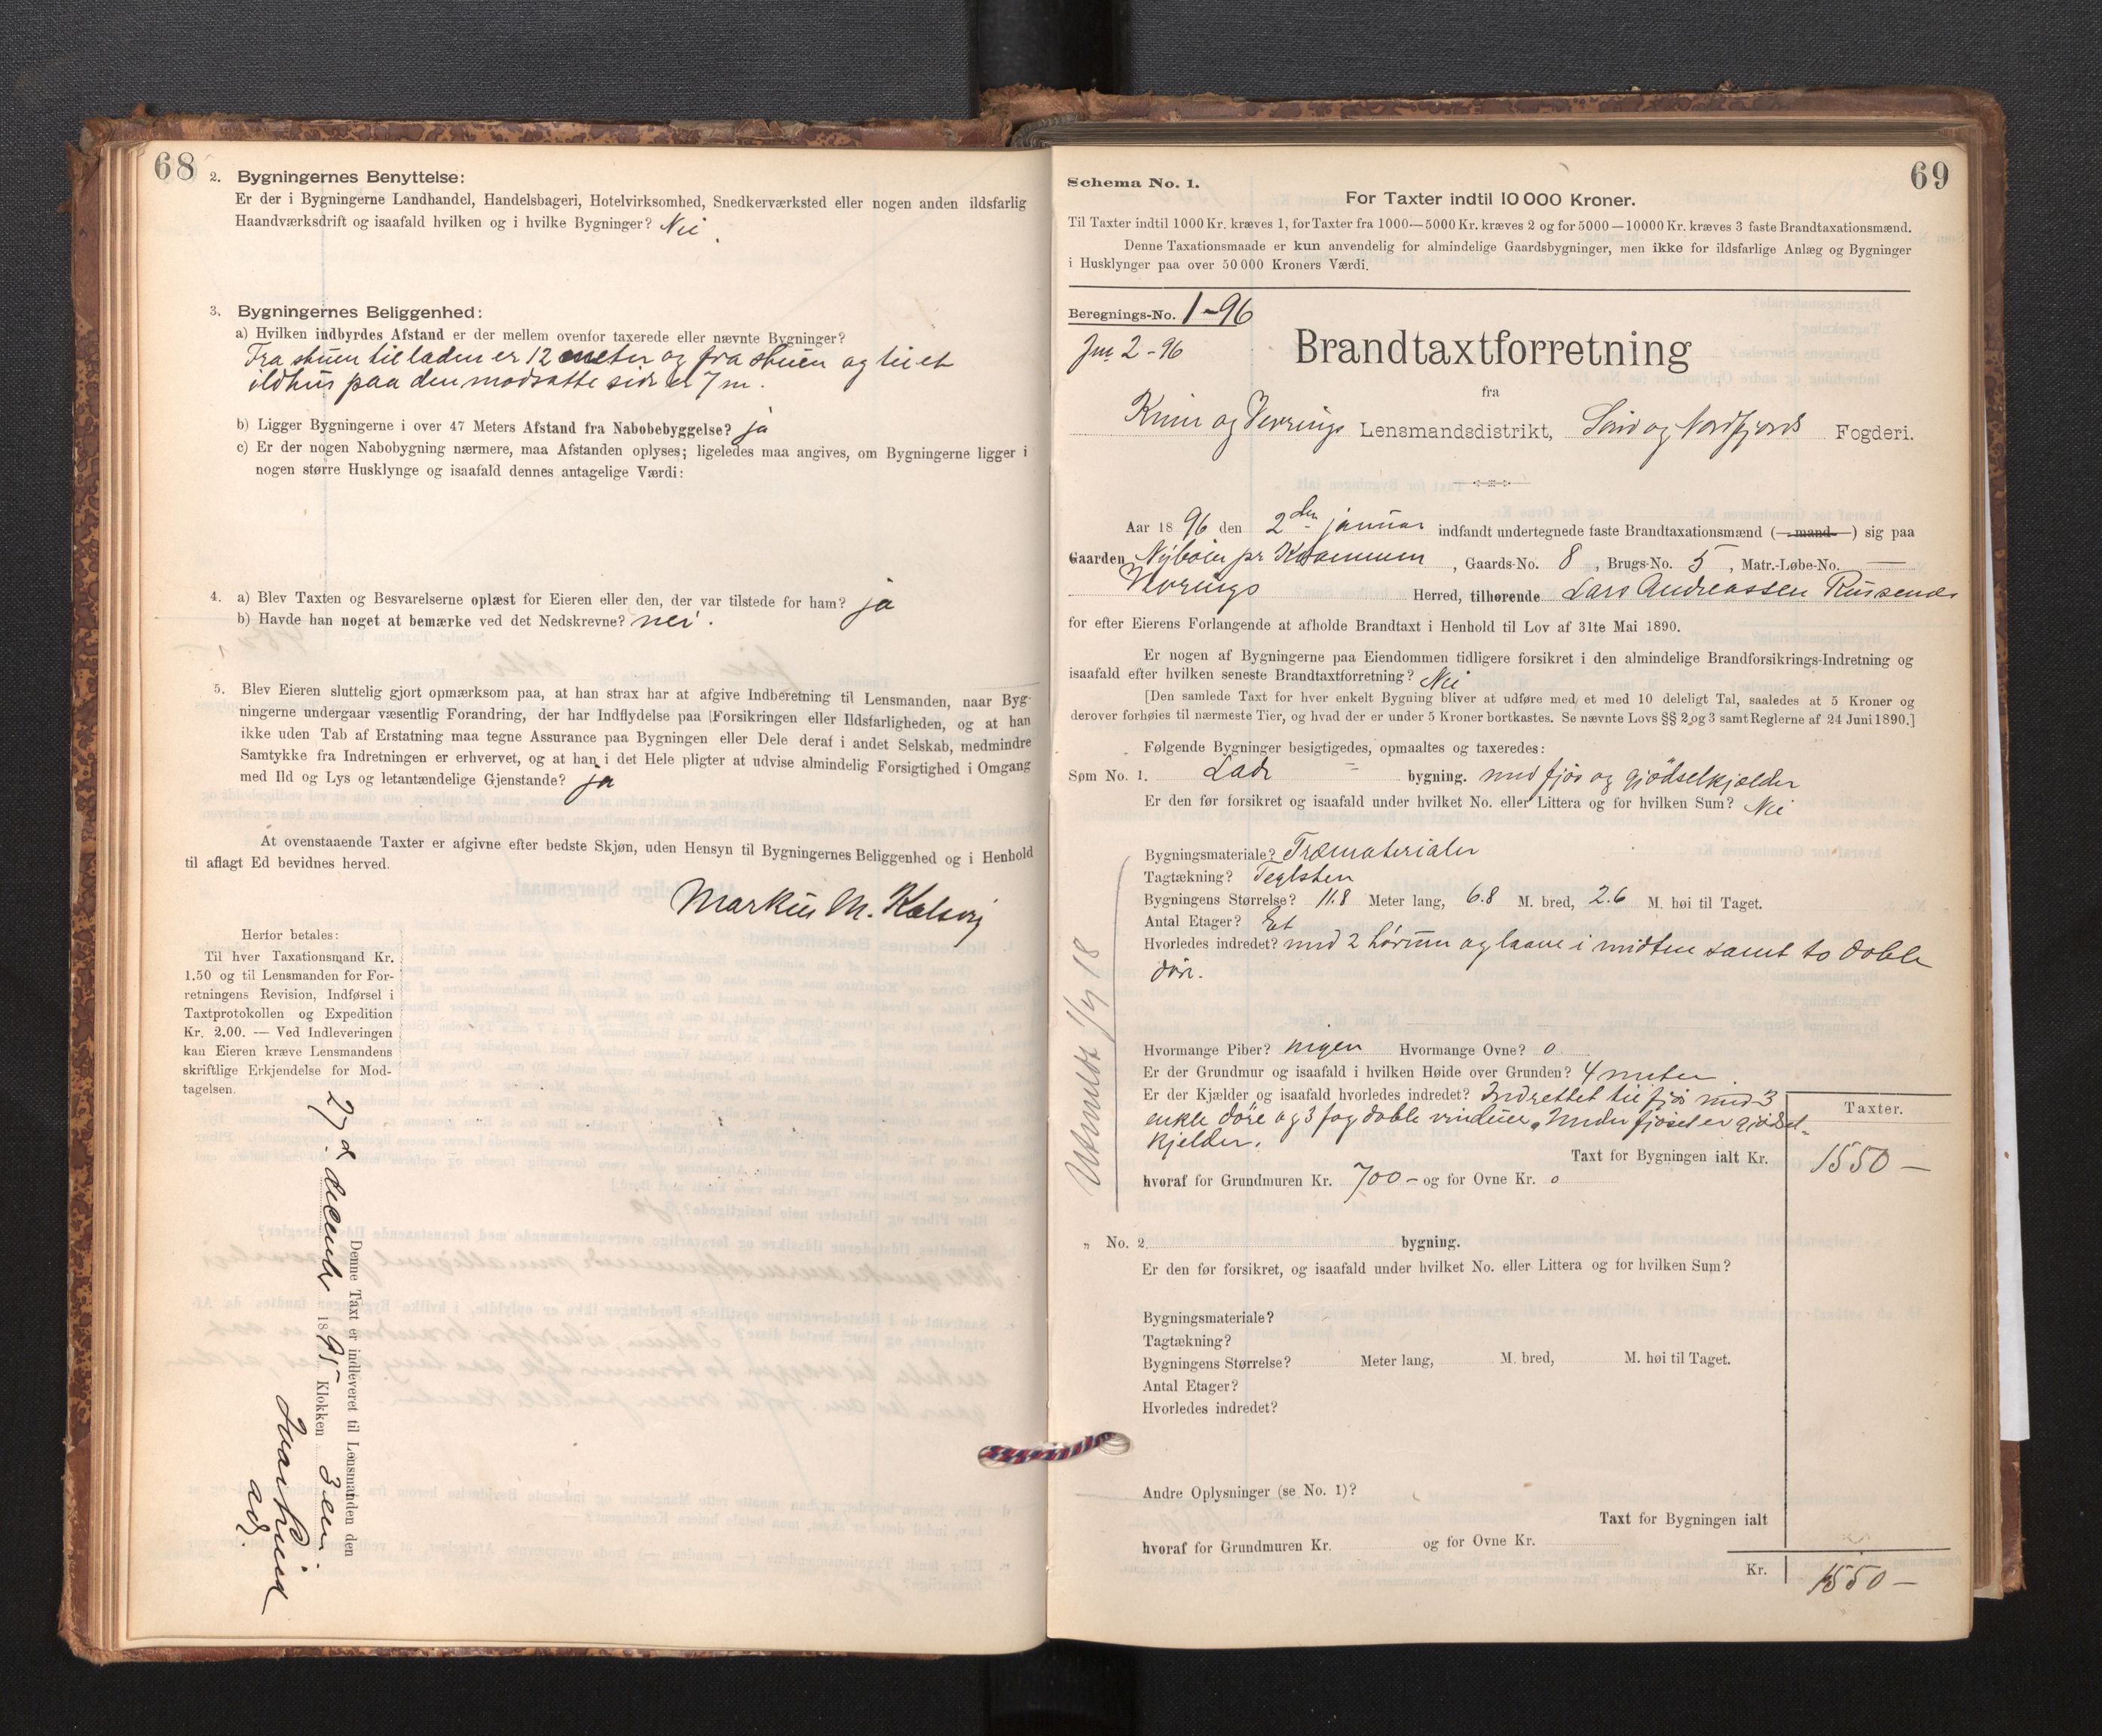 68
2. Bygningernes Benyttelse:
Er der i Bygningerne Landhandel, Handelsbageri, Hotelvirksomhed, Snedkerværksted eller nogen anden ildsfarlig
Haandværksdrift og isaafald hvilken og i hvilke Bygninger? Nei.
3. Bygningernes Beliggenhed:
a) Hvilken indbyrdes Afstand er der mellem ovenfor taxerede eller nævnte Bygninger?
Fra stuen til laden er 12 meter og fra stuen og til et
ildhus paa den modsatte side er 7 m.
b) Ligger Bygningerne i over 47 Meters Afstand fra Nabobebyggelse? ja
c) Er der nogen Nabobygning nærmere, maa Afstanden oplyses; ligeledes maa angives, om Bygningerne ligger i
nogen større Husklynge og isaafald dennes antagelige Værdi:
4. a) Blev Taxten og Besvarelserne oplæst for Eieren eller den, der var tilstede for ham? ja
b) Havde han noget at bemærke ved det Nedskrevne? nei.
5. Blev Eieren sluttelig gjort opmærksom paa, at han strax har at afgive Indberetning til Lensmanden, naar Byg-
ningerne undergaar væsentlig Forandring, der har Indflydelse paa Forsikringen eller Ildsfarligheden, og at han
ikke uden Tab af Erstatning maa tegne Assurance paa Bygningen eller Dele deraf i andet Selskab, medmindre
Samtykke fra Indretningen er erhvervet, og at han i det Hele pligter at udvise almindelig Forsigtighed i Omgang
med Ild og Lys og letantændelige Gjenstande? ja
At ovenstaaende Taxter er afgivne efter bedste Skjøn, uden Hensyn til Bygningernes Beliggenhed og i Henhold
til aflagt Ed bevidnes herved.
Markus M. Kalsvig
Herfor betales:
Til hver Taxationsmand Kr.
1.50 og til Lensmanden for For-
retningens Revision, Indførsel i
Taxtprotokollen og Expedition
Kr. 2.00. — Ved Indleveringen
kan Eieren kræve Lensmandens
skriftlige Erkjendelse for Mod-
tagelsen.
Denne Taxt er indleveret til Lensmanden den
27 d december 1895 Klokken 3 em
69
Schema No. 1.
For Taxter indtil 10 000 Kroner.
Til Taxter indtil 1000 Kr. kræves 1, for Taxter fra 1000—5000 Kr. kræves 2 og for 5000—10000 Kr. kræves 3 faste Brandtaxationsmænd.
Denne Taxationsmaade er kun anvendelig for almindelige Gaardsbygninger, men ikke for ildsfarlige Anlæg og Bygninger
i Husklynger paa over 50 000 Kroners Værdi.
Beregnings-No. 1-96
Jnr 2-96
Brandtaxtforretning
fra
Kinn og Vevrings Lensmandsdistrikt, Sønd og Nordfjords Fogderi.
Aar 1896 den 2den januar indfandt undertegnede faste Brandtaxationsmænd (mand) sig paa
Gaarden Nybøien pr Kvammen, Gaards-No. 8, Brugs-No. 5, Matr.-Løbe-No. —
Vevrings Herred, tilhørende Lars Andreassen
for efter Eierens Forlangende at afholde Brandtaxt i Henhold til Lov af 31te Mai 1890.
Er nogen af Bygningerne paa Eiendommen tidligere forsikret i den almindelige Brandforsikrings-Indretning og
isaafald efter hvilken seneste Brandtaxtforretning? Nei
[Den samlede Taxt for hver enkelt Bygning bliver at udføre med et med 10 deleligt Tal, saaledes at 5 Kroner og
derover forhøies til nærmeste Tier, og hvad der er under 5 Kroner bortkastes. Se nævnte Lovs §§ 2 og 3 samt Reglerne af 24 Juni 1890.]
Følgende Bygninger besigtigedes, opmaaltes og taxeredes:
Søm No. 1. Lade bygning. med fjøs og gjødselkjælder
Er den før forsikret og isaafald under hvilket No. eller Littera og for hvilken Sum? Nei
Bygningsmateriale? Træmaterialer
Tagtækning? Teglsten
Bygningens Størrelse? 11.8 Meter lang, 6.8 M. bred, 2.6 M. høi til Taget.
Antal Etager? Et
Hvorledes indredet? med 2 hørum og laave i midten samt to doble
døre.
Utmeldt 1/4 18
Hvormange Piber? ingen Hvormange Ovne? 0
Er der Grundmur og isaafald i hvilken Høide over Grunden? 4 meter.
Er der Kjælder og isaafald hvorledes indredet? Indrettet til fjøs med 3
enkle døre og 3 fag doble vinduer. Under fjøset er gjødsel-
kjelder.
Taxter.
Taxt for Bygningen ialt Kr. 1550 —
hvoraf for Grundmuren Kr. 700 — og for Ovne Kr. 0
„ No. 2. bygning.
Er den før forsikret, og isaafald under hvilket No. eller Littera og for hvilken Sum?
Bygningsmateriale?
Tagtækning?
Bygningens Størrelse? Meter lang, M. bred, M. høi til Taget.
Antal Etager?
Hvorledes indredet?
Andre Oplysninger (se No. 1)?
Taxt for Bygningen ialt
hvoraf for Grundmuren Kr. og for Ovne Kr.
Kr. 1550 —